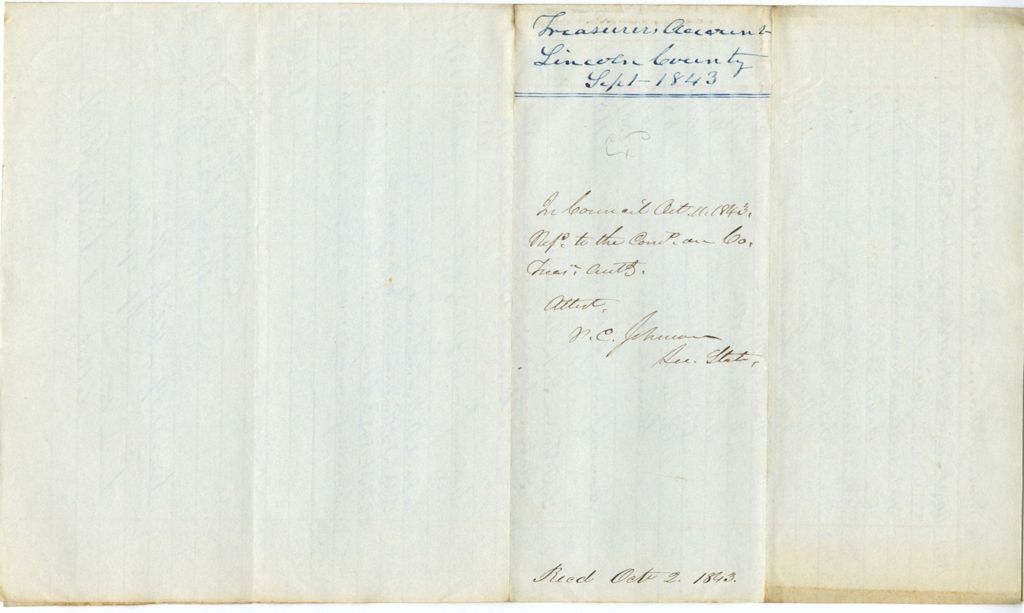 Treasurers Account
Lincoln County
Sept 1843
In Council Oct. 11. 1843.
Refd. to the Come. on Co.
Treasr. Accts.
Attest,
P. C. Johnson
Sec. State,
Recd Oct 2. 1843.